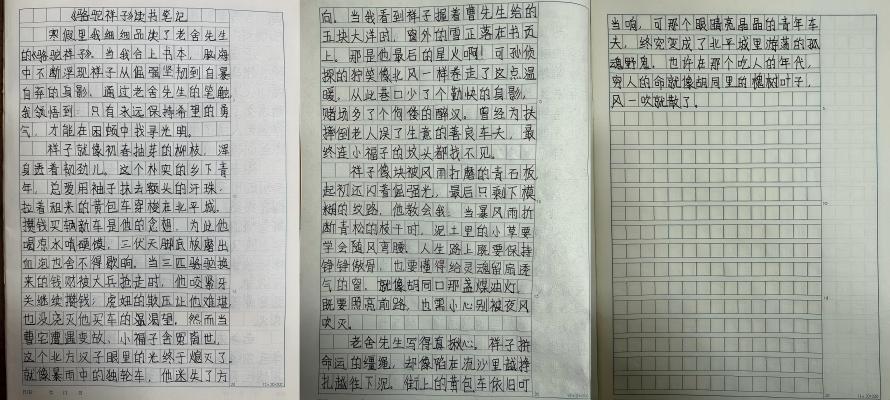 《骆驼祥子》读书笔记
寒假里我细细品读了老舍先生
的《骆驼祥子》。当我合上书本，脑海
中不断浮现祥子从倔强坚韧到自暴
自弃的身影。通过老舍先生的笔触，
我领悟到：只有永远保持希望的勇
气，才能在困顿中找寻光明。
祥子就像初春抽芽的柳枝，浑
身透着韧劲儿。这个朴实的乡下青
年，总爱用袖子抹去额头的汗珠，
拉着租来的黄包车穿梭在北平城。
攒钱买辆新车是他的念想，为此他
喝凉水啃硬馍，三伏天脚底板磨出
血泡也舍不得歇晌。当三匹骆驼换
来的钱财被大兵抢走时，他咬紧牙
关继续攒钱；虎妞的欺压让他难堪，
也没浇灭他买车的渴望。然而当
曹宅遭遇变故、小福子含冤离世，
这个北方汉子眼里的光终于熄灭了。
就像暴雨中的独轮车，他迷失了方
向。当我看到祥子握着曹先生给的
五块大洋时，窗外的雪正落在书页
上。那是他最后的星火啊！可孙侦
探的狞笑像北风一样卷走了这点温
暖，从此巷口少了个勤快的身影，
赌场多了个佝偻的醉汉。曾经为扶
摔倒老人误了生意的善良车夫，最
终连小福子的坟头都找不见。
祥子像块被风雨打磨的青石板，
起初还闪着倔强光，最后只剩下模
糊的纹路。他教会我：当暴风雨折
断青松的枝干时，泥土里的小草要
学会随风弯腰。人生路上既要保持
铮铮傲骨，也要懂得给灵魂留扇透
气的窗。就像胡同口那盏煤油灯，
既要照亮前路，也需小心别被夜风
吹灭。
老舍先生写得真揪心。祥子拼
命运的缰绳，却像陷在流沙里越挣
扎越往下沉。街上的黄包车依旧叮
当响，可那个眼睛亮晶晶的青年车
夫，终究变成了北平城里游荡的孤
魂野鬼。也许在那个吃人的年代，
穷人的命就像胡同里的槐树叶子，
风一吹就散了。